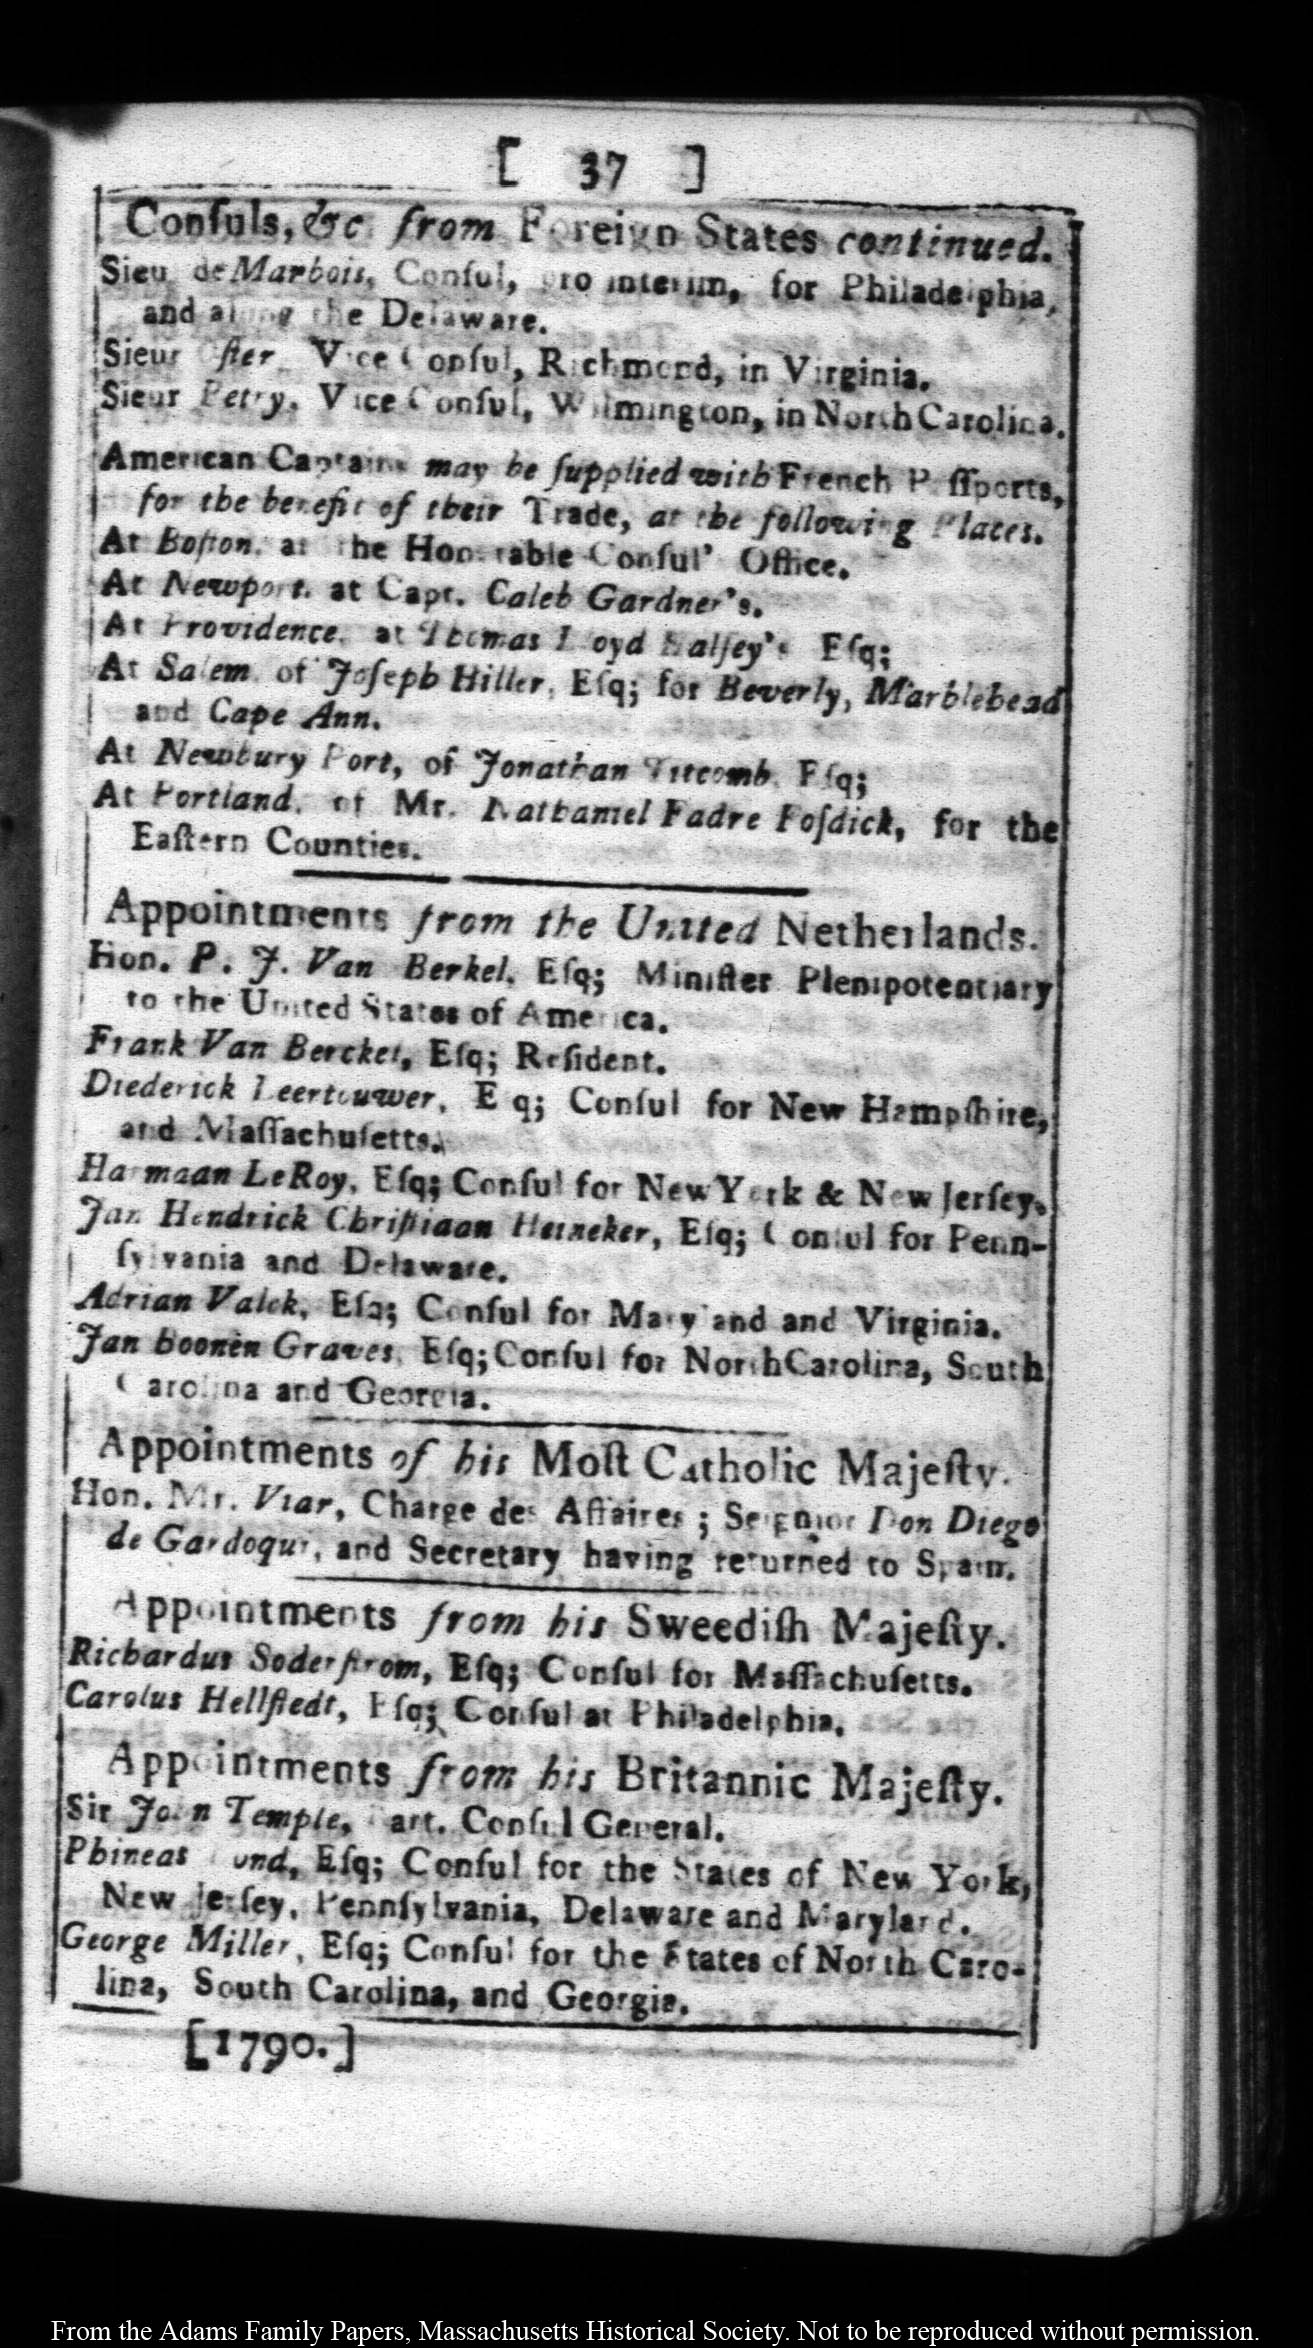 [ 37 ]
Conſuls, &c from Foreign States continued.
Sieu de Marbois, Conſul, pro interim, for Philadelphia,
and along the Delaware.
Sieur Oſter Vice Conſul, Richmond, in Virginia.
Sieur Petry, Vice Conſul, Wilmington, in North Carolina.
American Captains may be ſupplied with French Paſſports,
for the benefit of their Trade, at the following Places.
At Boſton, at the Honorable Conſul' Office.
At Newport, at Capt. Caleb Gardner's.
At Providence, at Thomas Lloyd Halſey's Eſq;
At Salem of Joſeph Hiller, Eſq; for Beverly, Marblehead
and Cape Ann.
At Newbury Port, of Jonathan Titcomb, Eſq;
At Portland, of Mr. Nathaniel Fadre Foſdick, for the
Eaſtern Counties.
Appointments from the United Netherlands.
Hon. P. J. Van Berkel, Eſq; Miniſter Plenipotentiary
to the United States of America.
Frank Van Berckel, Eſq; Reſident.
Diederick Leertouwer, Eſq; Conſul for New Hampſhire,
and Maſſachuſetts.
Harmaan LeRoy, Eſq; Conſul for New York & New Jerſey.
Jan Hendrick Chriſtiaan Heineker, Eſq; Conſul for Penn-
ſylvania and Delaware.
Adrian Valck, Eſq; Conſul for Maryland and Virginia.
Jan Boonèn Graves, Eſq; Conſul for North Carolina, South
Carolina and Georgia.
Appointments of his Moſt Catholic Majeſty.
Hon. Mr. Viar, Charge des Affaires; Seignior Don Diego
de Gardoqui, and Secretary having returned to Spain.
Appointments from his Sweediſh Majeſty.
Richardus Soderſtrom, Eſq; Conſul for Maſſachuſetts.
Carolus Hellſtedt, Eſq; Conſul at Philadelphia.
Appointments from his Britannic Majeſty.
Sir John Temple, Bart. Conſul General.
Phineas Bond, Eſq; Conſul for the States of New York,
New Jerſey, Pennſylvania, Delaware and Maryland.
George Miller, Eſq; Conſul for the States of North Caro-
lina, South Carolina, and Georgia.
[1790.]
From the Adams Family Papers, Massachusetts Historical Society. Not to be reproduced without permission.